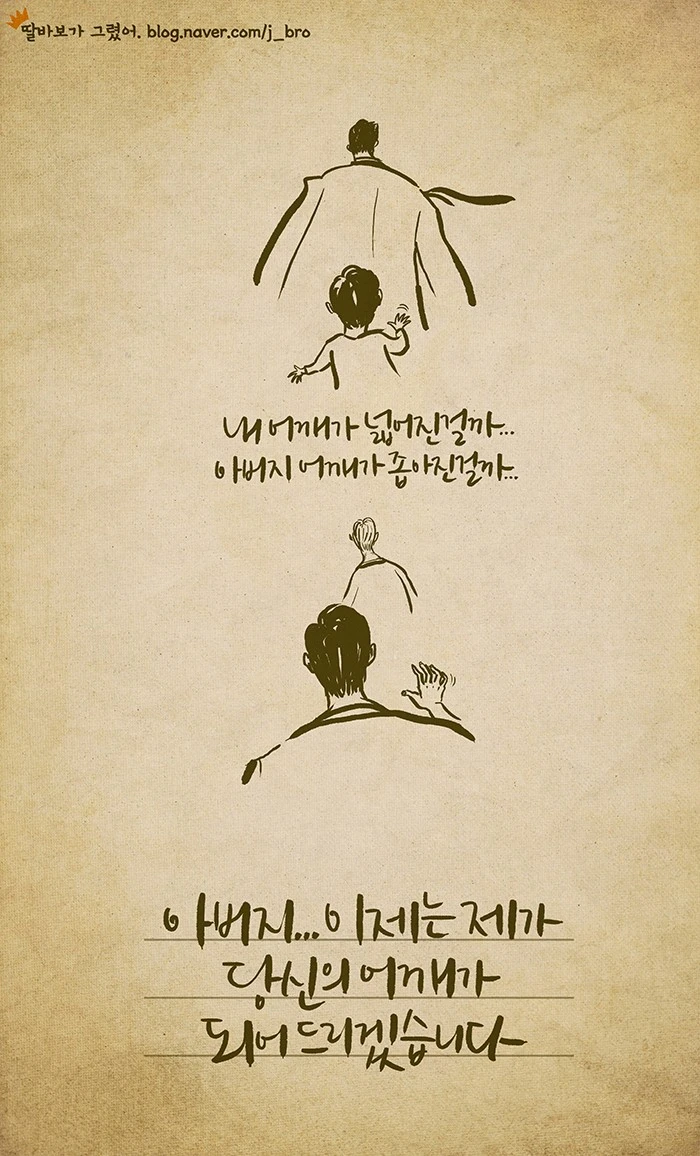 딸바보가 그렸어. blog.naver.com/j_bro
내 어깨가 넓어진걸까...
아버지 어깨가 좁아진걸까...
아버지... 이제는 제가
당신의 어깨가
되어 드리겠습니다